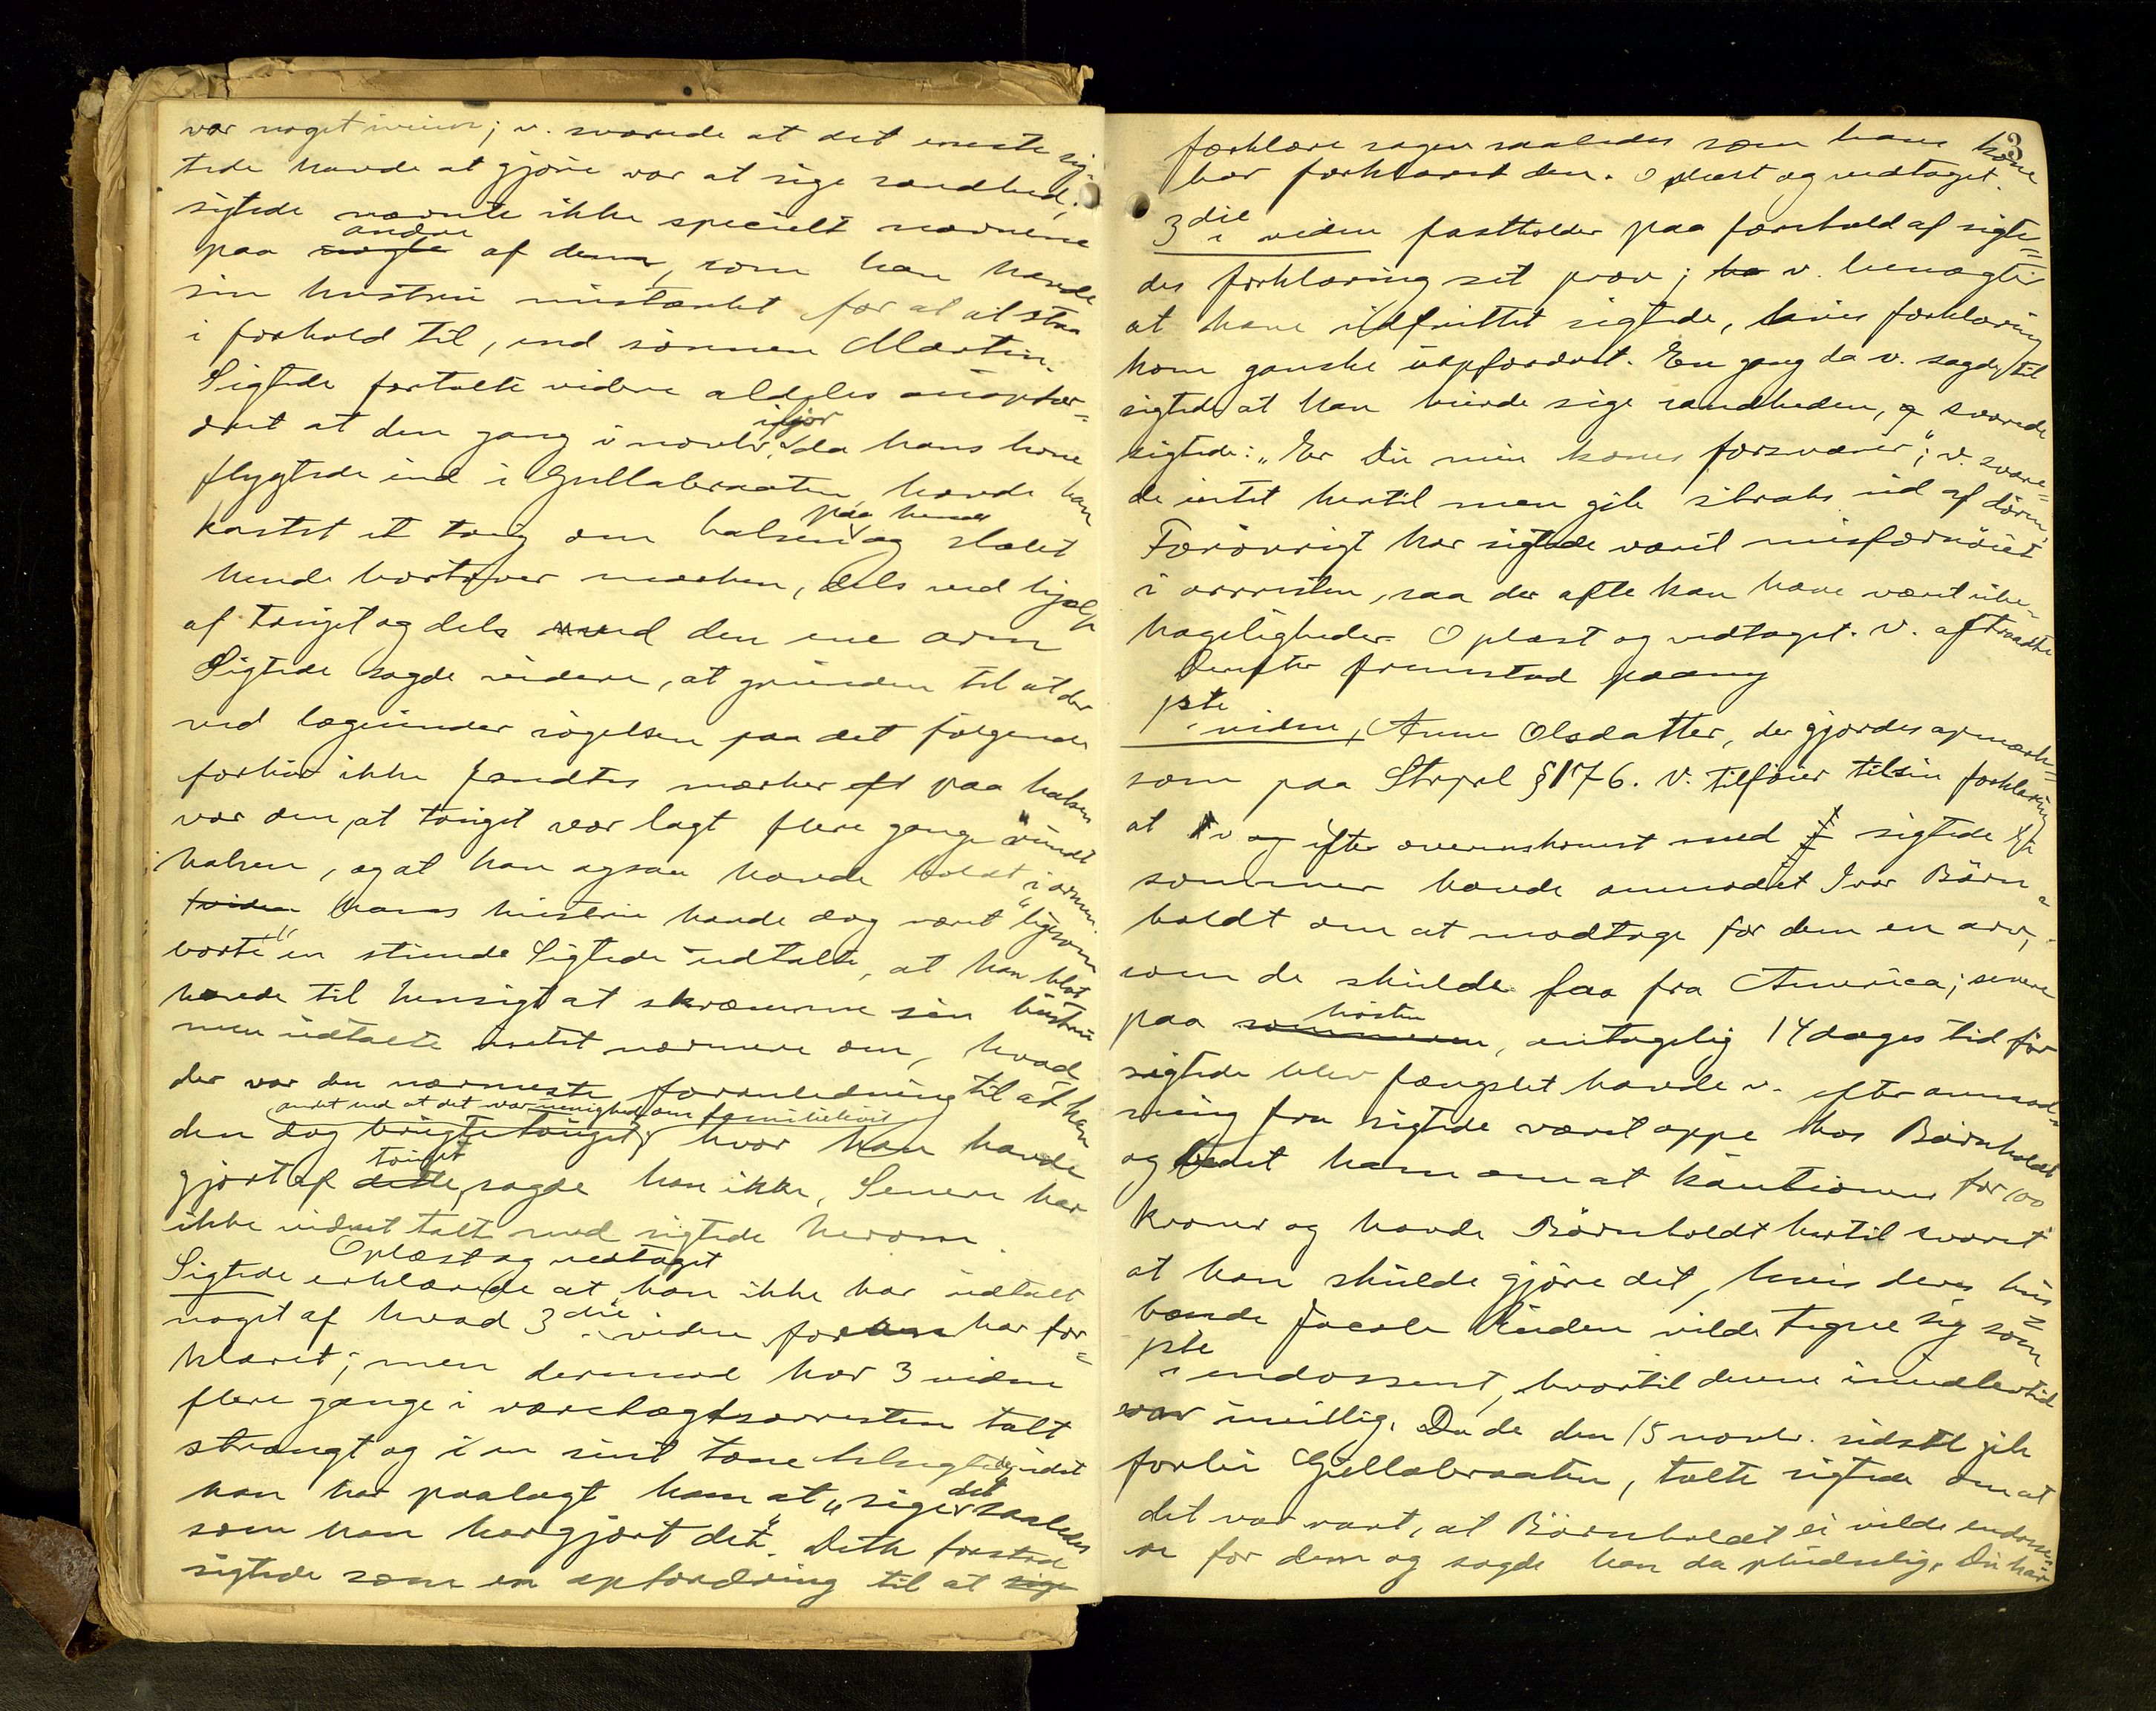 var noget iveien; v. svarede at det eneste sig-
tede havde at gjøre var at sige sandhed;
sigtede nævnte ikke specielt navnene
paa andre af dem, som han havde
sin hustru mistænkt for at at staa
i forhold til, end sønnen Martin.
Sigtede fortalte videre aldeles uopfor=
dret at den gang i novbr. ifjor da hans kone
flygtede ind i Gullabraaten, havde han
kastet et toug om halsen paa hende og slæbt
hende bortover marken, dels ved hjælp
af touget og dels med den ene arm
Sigtede sagde videre, at grunden til at der
ved lægeundersøgelsen paa det følgende
forhør ikke fandtes mærker paa halsen
var den, at touget var lagt flere gange "rundt
halsen, og at han ogsaa havde holdt i armen.
hans hustru havde dog været "ligesom
borte" en stund. Sigtede udtalte, at han blot
havde til hensigt at skræmme sin hustru
men udtalte intet nærmere om, hvad
der var den nærmeste foranledning til at han
andet end at det var uenighed om familielivet
den dag brugte touget; hvor han havde
gjort af touget sagde han ikke. Senere har
ikke vidnet talt med sigtede herom.
Oplæst og vedtaget
Sigtede erklærede at han ikke har udtalt
noget af hvad 3die vidne har for=
klaret; men dermod har 3 vidne
flere gange i varetægtsarresten talt
strængt og i en sint tone til sigtede, idet
han har paalagt ham at "sige det saaledes
som han har gjort det". Dette forstod
sigtede som en opfordring til at
3
forklare sagen saaledes som hans kone
har forklaret den. Oplæst og vedtaget.
3die vidne fastholder paa forehold af sigte=
des forklaring sit prov; v. benægter
at have udfrittet sigtede, hvis forklaring
kom ganske uopfordret. En gang da v. sagde til
sigtede at han burde sige sandheden, svarede
sigtede: "Er Du min kones forsvarer"; v. svare=
de intet hertil men gik straks ud af døren.
Forøvrigt har sigtede været misfornøiet
i arresten, saa der ofte kan have været ube-
hageligheder. Oplæst og vedtaget. V. aftraadte
Derefter fremstod paany
1ste vidne, Anne Olsdatter, der gjordes opmærk=
som paa Strprl § 176. V. tilføier til sin forklaring
at v og efter overenskomst med sigtede
sommer havde anmodet Ivar Børn-
holdt om at modtage for dem en arv,
som de skulde faa fra America; senere
paa høsten, antagelig 14 dages tid før
sigtede blev fængslet havde v. efter anmod-
ning fra sigtede været oppe hos Børnholdt
og bedt ham om at kautionere for 100
kroner og havde Børnholdt hertil svaret
at han skulde gjøre det, hvis deres hus
bonde Jacob vilde tegne sig som
1ste endossent, hvortil denne imidlertid
var uvillig. Da de den 15 novbr. sidstl gik
forbi Gullabraaten, talte sigtede om at
det var rart, at Børnholdt ei vilde endosse-
re for dem og sagde han da pludselig. Du har